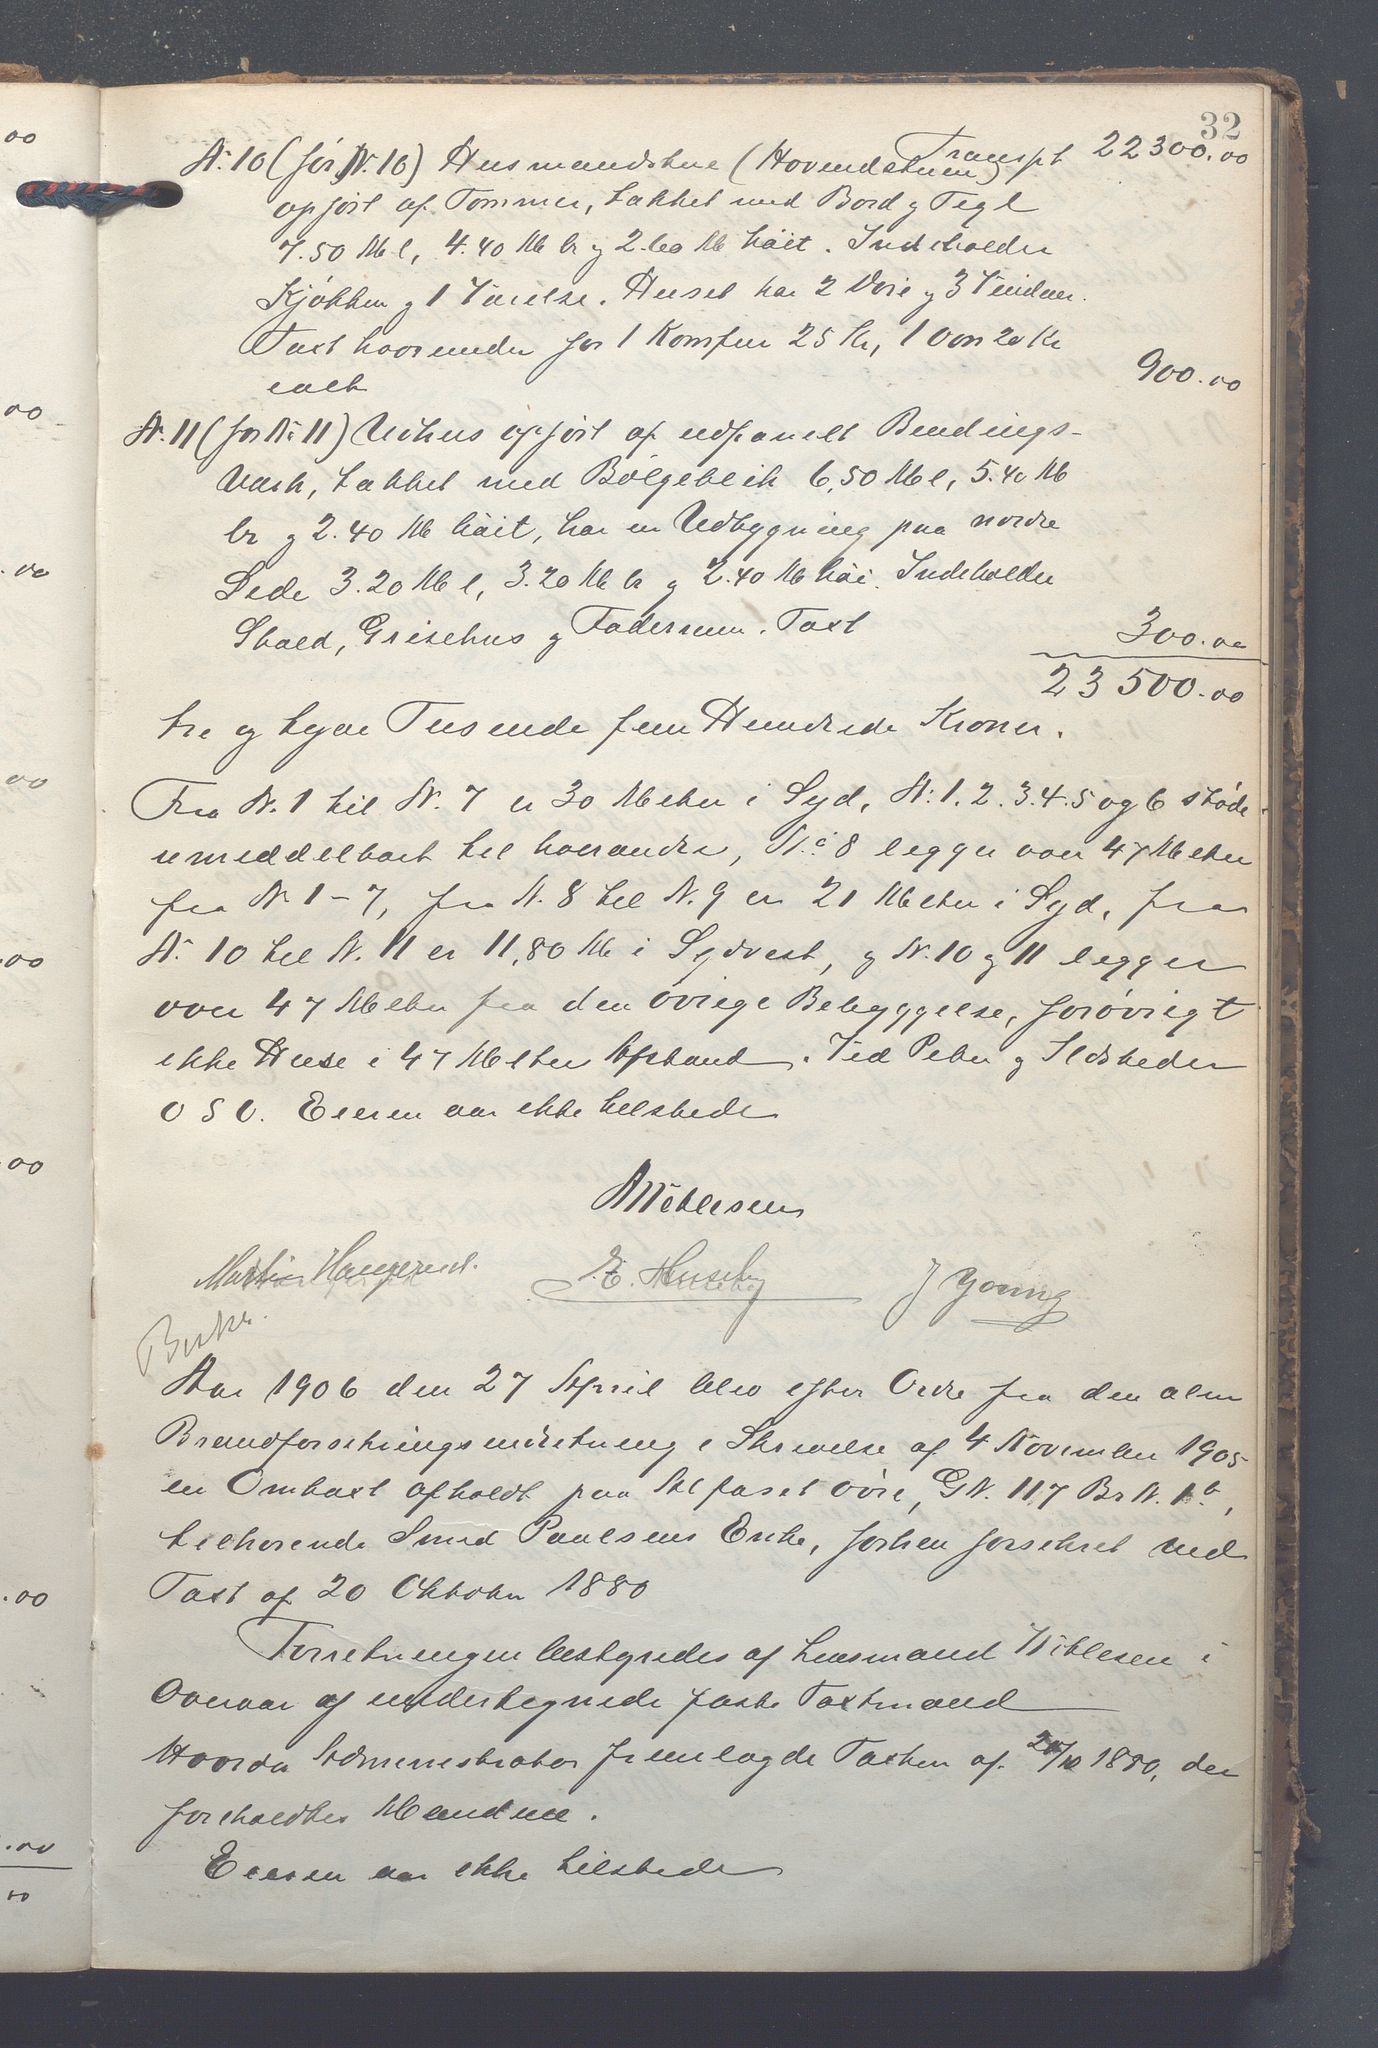 32
Transpt 22300.00
N. 10 (før N. 10) Husmandstue (Hovendstuen)
opført af Tømmer, takket med Bord g Tegl
7.50 M l, 4.40 M br g 2.60 M høit. Indeholder
Kjøkken g 1 Værelse. Huset har 2 Døre g 3 Vinduer.
Taxt hvorunder for 1 Komfur 25 Kr, 1 Ovn 20 Kr
ialt 900.00
N. 11 (før N. 11) Udhus opført af udpanelt Bindings-
værk, takket med Bølgeblik 6,50 M l, 5.40 M
br g 2.40 M høit, har en Udbygning paa nordre
Side 3.20 M l, 3.20 M br g 2.40 M høi. Indeholder
Stald, Grisehus g Foderrum. Taxt 300.00
23500.00
tre og tyve Tusende fem Hundrede Kroner.
Fra N. 1 til N. 7 er 30 Meter i Syd, N. 1. 2. 3. 4. 5 og 6 støde
umiddelbart til hverandre, N. 8 ligger over 47 Meter
fra N. 1-7, fra N. 8 til N. 9 er 21 Meter i Syd, fra
N. 10 til N. 11 er 11,80 M i Sydvest, g N. 10 g 11 ligger
over 47 Meter fra den øvrige Bebyggelse, forøvrigt
ikke Huse i 47 Meter Afstand. Ved Piber g Ildsteder
O S V. Eieren var ikke tilstede
Martin Haugerud. E. Huseby J Young
Aar 1906 den 27 April blev efter Ordre fra den alm
Brandforsikringsindretning i Skrivelse af 4 November 1905
en Omtaxt afholdt paa øvre, GN. 117 Br N. 1 b,
tilhørende Smed Paulsens Enke, forhen forsikret ved
Taxt af 20 Oktober 1880
Forretningen bestyredes af Lensmand i
Overvær af undertegnede faste Taxtmænd
Hvorda Administrator fremlagde Taxten af 20/10 1880, der
foreholdtes Mændene.
Eieren var ikke tilstede
00
00
.00
00
.00
.00
.00
.00
00